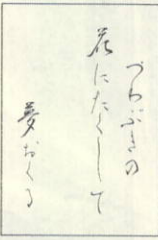 つわぶきの
花にたくして
夢おくる